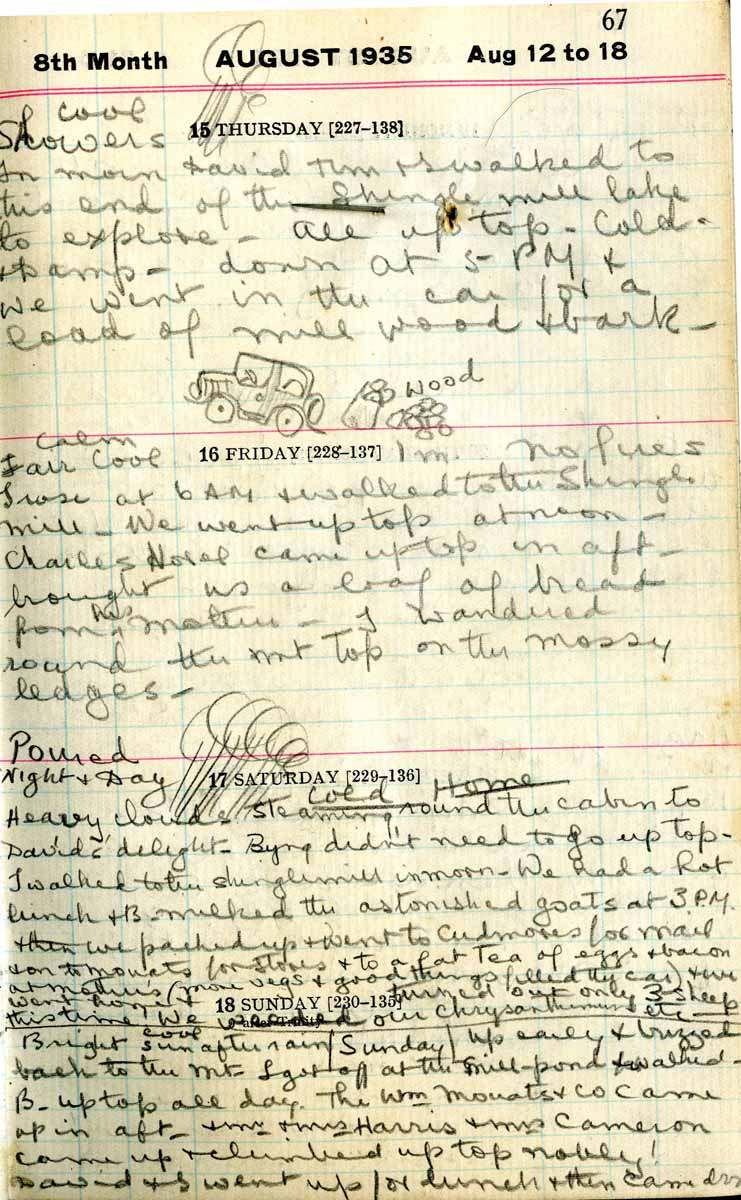 67
8th Month AUGUST 1935 Aug 12 to 18
cool
Showers 15 THURSDAY [227–138]
In morn David Tim & I walked to
this end of the Shingle mill lake
to explore – all up top – Cold –
& damp – down at 5 PM &
we went in the car for a
load of mill wood & bark –
wood
calm
Fair Cool 16 FRIDAY [228–137] no fires
I rose at 6 AM & walked to the Shingle
mill – We went up top at noon –
Charles Horel came up top in aft –
brought us a loaf of bread
from his Mother – I wandered
round the mt top on the mossy
ledges –
Poured
Night & Day 17 SATURDAY [229–136] Home
cold
Heavy clouds steaming round the cabin to
David's delight – Byng didn't need to go up top –
I walked to the shingle mill in morn – We had a hot
lunch & B – milked the astonished goats at 3 P.M.
& then we packed up & went to Cudmores for mail
& on to Mouats for stores & to a fat Tea of eggs & bacon
at mother's (more vegs & good things filled the car) & we
went home & turned out only 3 sheep
this time! We weeded our chrysanthemums etc –
18 SUNDAY [230–135]
after Trinity
cool
Bright sun after rain (Sunday) up early & buzzed
back to the Mt – I got off at the mill-pond & walked –
B – up top all day. The Wm Mouats & co came
up in aft – & Mr & Mrs Harris & Mrs Cameron
came up & climbed up top nobly!
David & I went up for lunch & then came dn